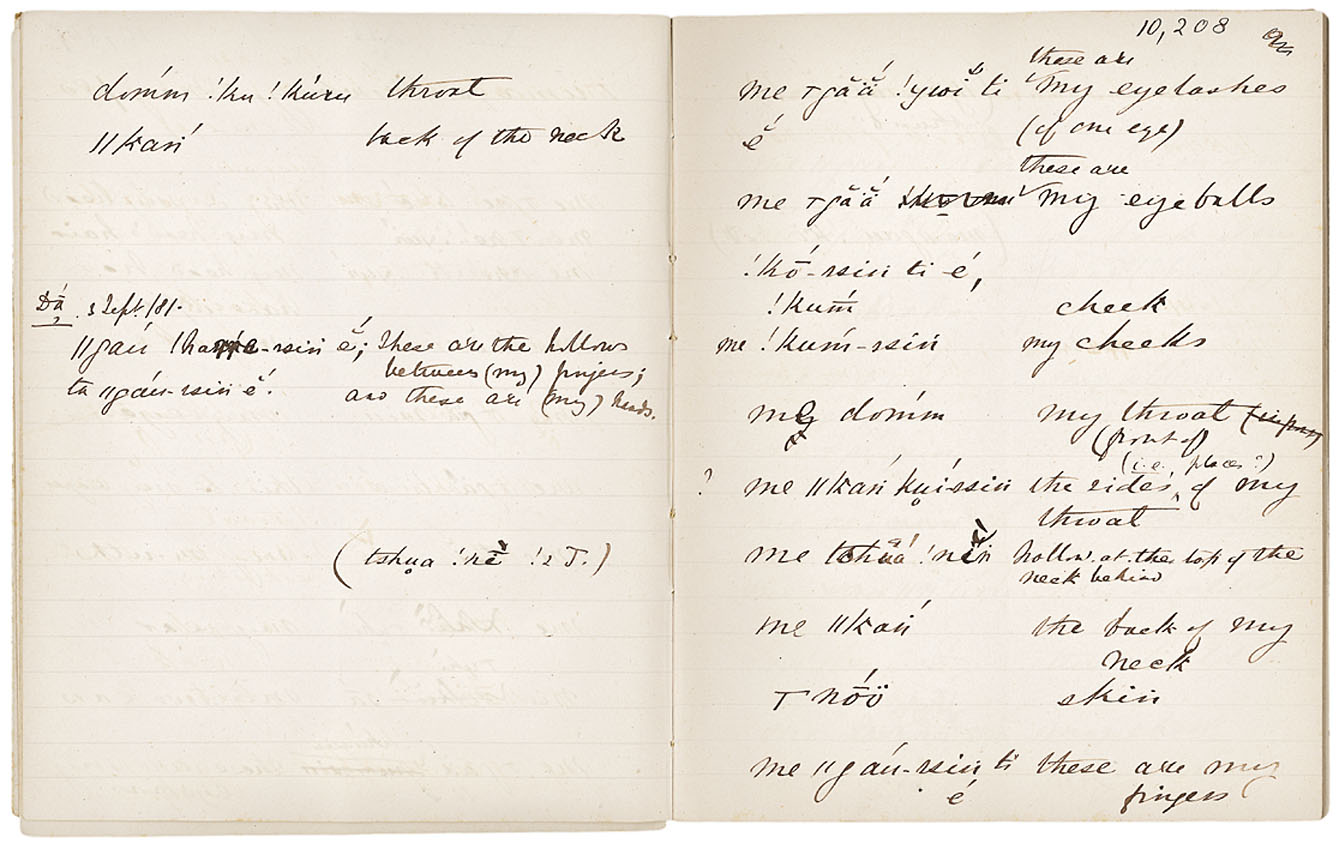 domḿm !ku !kúru throat
||kań back of the neck
Dā. 3 Sept./81.
||gań !ha -ssin é̆; These are the hollows
between (my) fingers;
ta ||gáń-ssin é̆. and these are (my) hands.
(tshụa !nē̆ !2 T.)
10,208
these are
me ⊤gắắ !ywĭ ti my eyelashes
é̆ (of one eye)
these are
me ⊤gắắ my eyeballs
!kō̆-ssin ti é,
!kuḿ cheek
me !kuḿ-ssin my cheeks
me domḿm my throat
(front of)
(i.e., places?)
? me ||kań kụí-ssin the sides of my
throat
me tshụá !nin hollow at the top of the
neck behind
me ||kań the back of my
neck
⊤ nṓö skin
me ||gáń-ssin ti these are my
é fingers